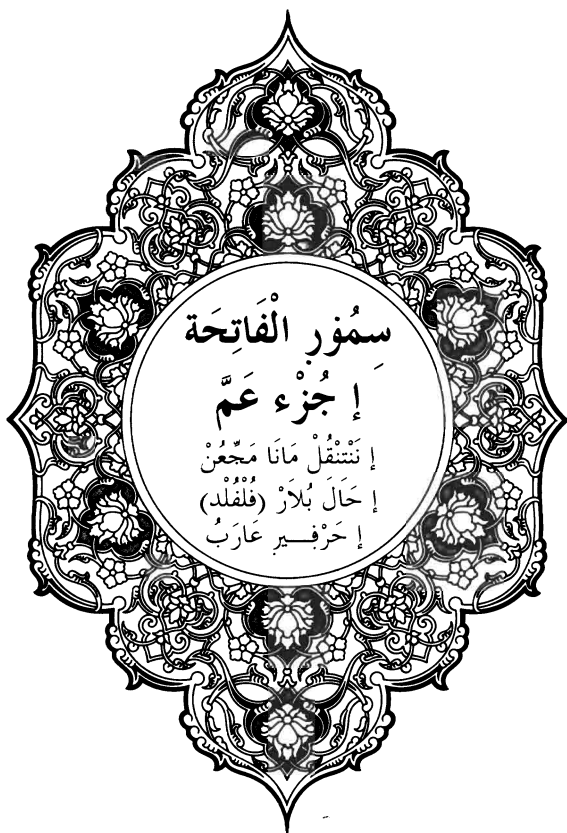 سِمُوْرٖ الْفَاتِحَة
إ جُزْء عَمَّ
إ نَنْتْنْقُلْ مَانَا مَجِّعُنْ
إ حَالَ بُلَارْ (فُلْفُلْد)
إ حَرْفِيرٖ عَارَبُ